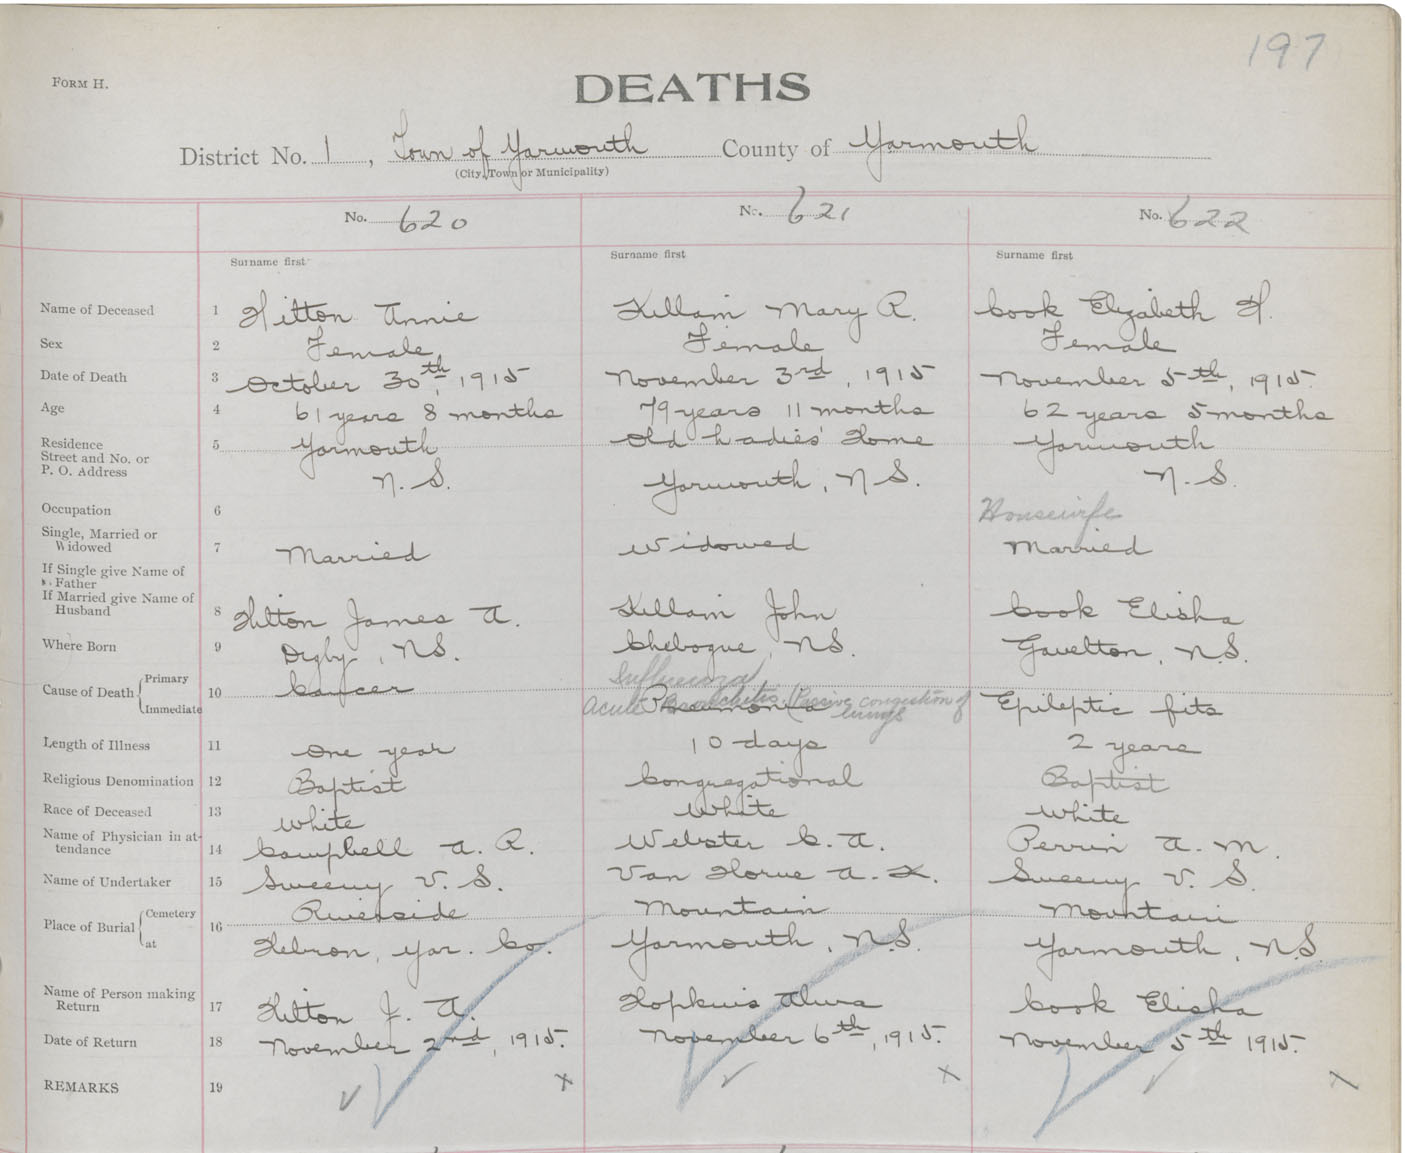 197
FORM H.
DEATHS
District No. 1, Town of Yarmouth County of Yarmouth
(City, Town or Municipality)
No. 620 No. 621 No. 622
Surname first Surname first Surname first
Name of Deceased 1 Hilton Annie Killam Mary R. Cook Elizabeth H.
Sex 2 Female Female Female
Date of Death 3 October 30th, 1915 November 3rd, 1915 November 5th, 1915.
Age 4 61 years 8 months 79 years 11 months 62 years 5 months
Residence 5 Yarmouth Old Ladies' Home Yarmouth
Street and No. or
P. O. Address N.S. Yarmouth, N.S. N.S.
Occupation 6 Housewife
Single, Married or
Widowed 7 Married Widowed Married
If Single give Name of
Father
If Married give Name of
Husband 8 Hilton James A. Killam John Cook Elisha
Where Born 9 Digby, N.S. Chebogue, N.S. Gavelton, N.S.
Cause of Death Primary 10 Cancer Influenza
Immediate Acute Bronchitis Pneumonia (Passive congestion of lungs Epileptic fits
Length of Illness 11 One year 10 days 2 years
Religious Denomination 12 Baptist Congregational Baptist
Race of Deceased 13 White White White
Name of Physician in at-
tendance 14 Campbell A. R. Webster C. A. Perrin A. M.
Name of Undertaker 15 Sweeny V. S. Van Horne A. K. Sweeny V. S.
Place of Burial Cemetery 16 Riverside Mountain Mountain
at Hebron, Yar. Co. Yarmouth, N.S. Yarmouth, N.S.
Name of Person making
Return 17 Hilton J. A. Hopkins Alma Cook Elisha
Date of Return 18 November 2nd, 1915. November 6th, 1915. November 5th 1915.
REMARKS 19 x x x